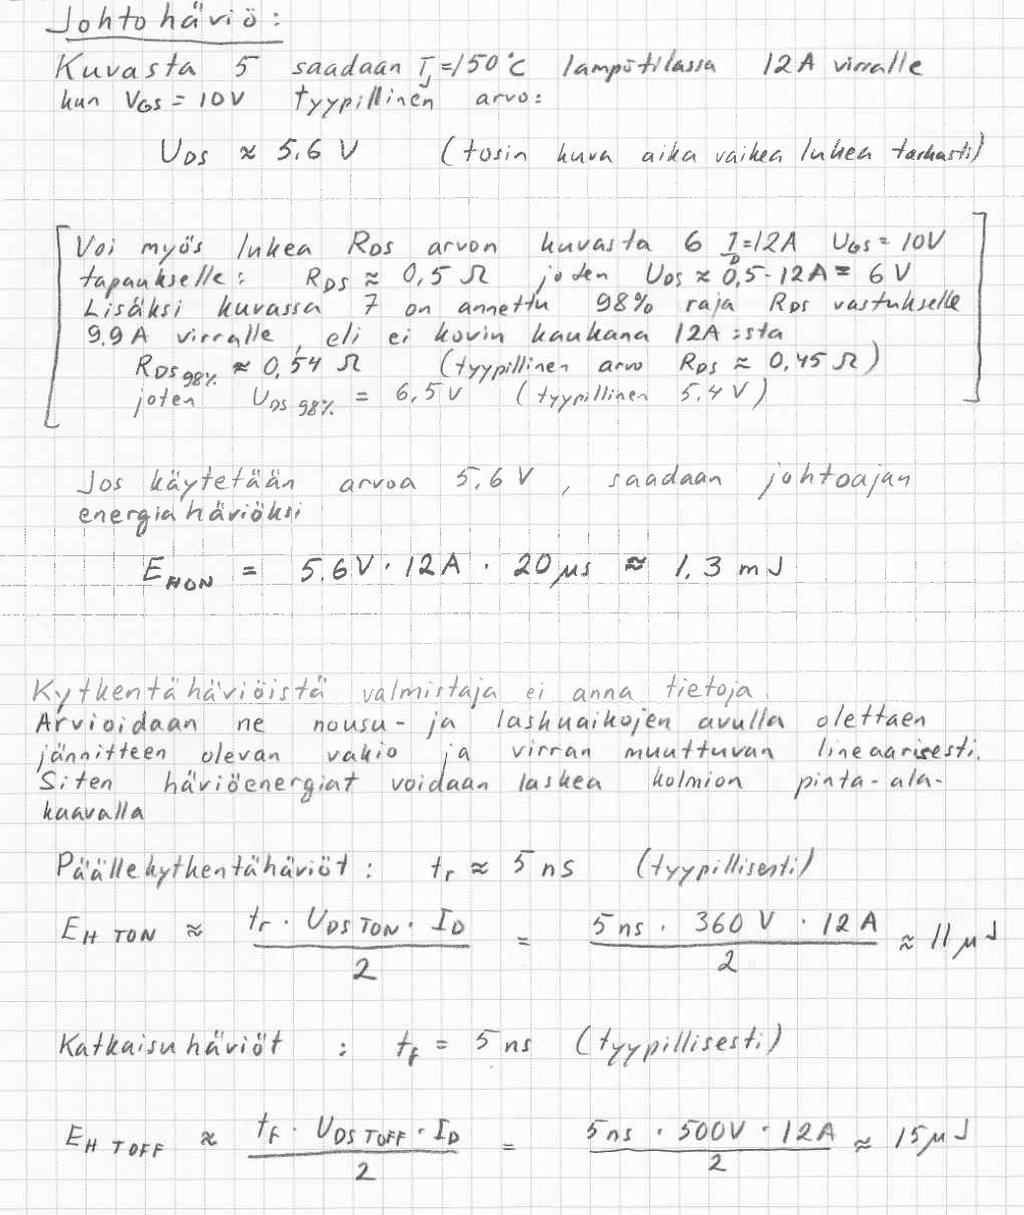 Johtohäviö:
Kuvasta 5 saadaan Tj=150°C lämpötilassa 12A virralle
kun VGS = 10V tyypillinen arvo:
UDS ≈ 5.6 V (tosin kuva aika vaikea lukea tarkasti)
Voi myös lukea RDS arvon kuvasta 6 ID=12A UGS = 10V
tapaukselle: RDS ≈ 0,5 Ω joten UDS ≈ 0,5·12A = 6 V
Lisäksi kuvassa 7 on annettu 98% raja RDS vastukselle
9.9 A virralle, eli ei kovin kaukana 12A:sta
RDS98% ≈ 0,54 Ω (tyypillinen arvo RDS ≈ 0,45 Ω)
joten UDS 98% = 6,5 V (tyypillinen 5.4 V)
Jos käytetään arvoa 5.6 V, saadaan johtoajan
energiahäviöksi
EHON = 5.6V · 12A · 20 µs ≈ 1.3 mJ
Kytkentähäviöistä valmistaja ei anna tietoja.
Arvioidaan ne nousu- ja laskuaikojen avulla olettaen
jännitteen olevan vakio ja virran muuttuvan lineaarisesti.
Siten häviöenergiat voidaan laskea kolmion pinta-ala-
kaavalla
Päällekytkentähäviöt: tr ≈ 5 ns (tyypillisesti)
EH TON ≈ tr · UDS TON · ID / 2 = 5 ns · 360 V · 12 A / 2 ≈ 11 µJ
Katkaisuhäviöt : tf = 5 ns (tyypillisesti)
EH TOFF ≈ tf · UDS TOFF · ID / 2 = 5 ns · 500V · 12A / 2 ≈ 15 µJ